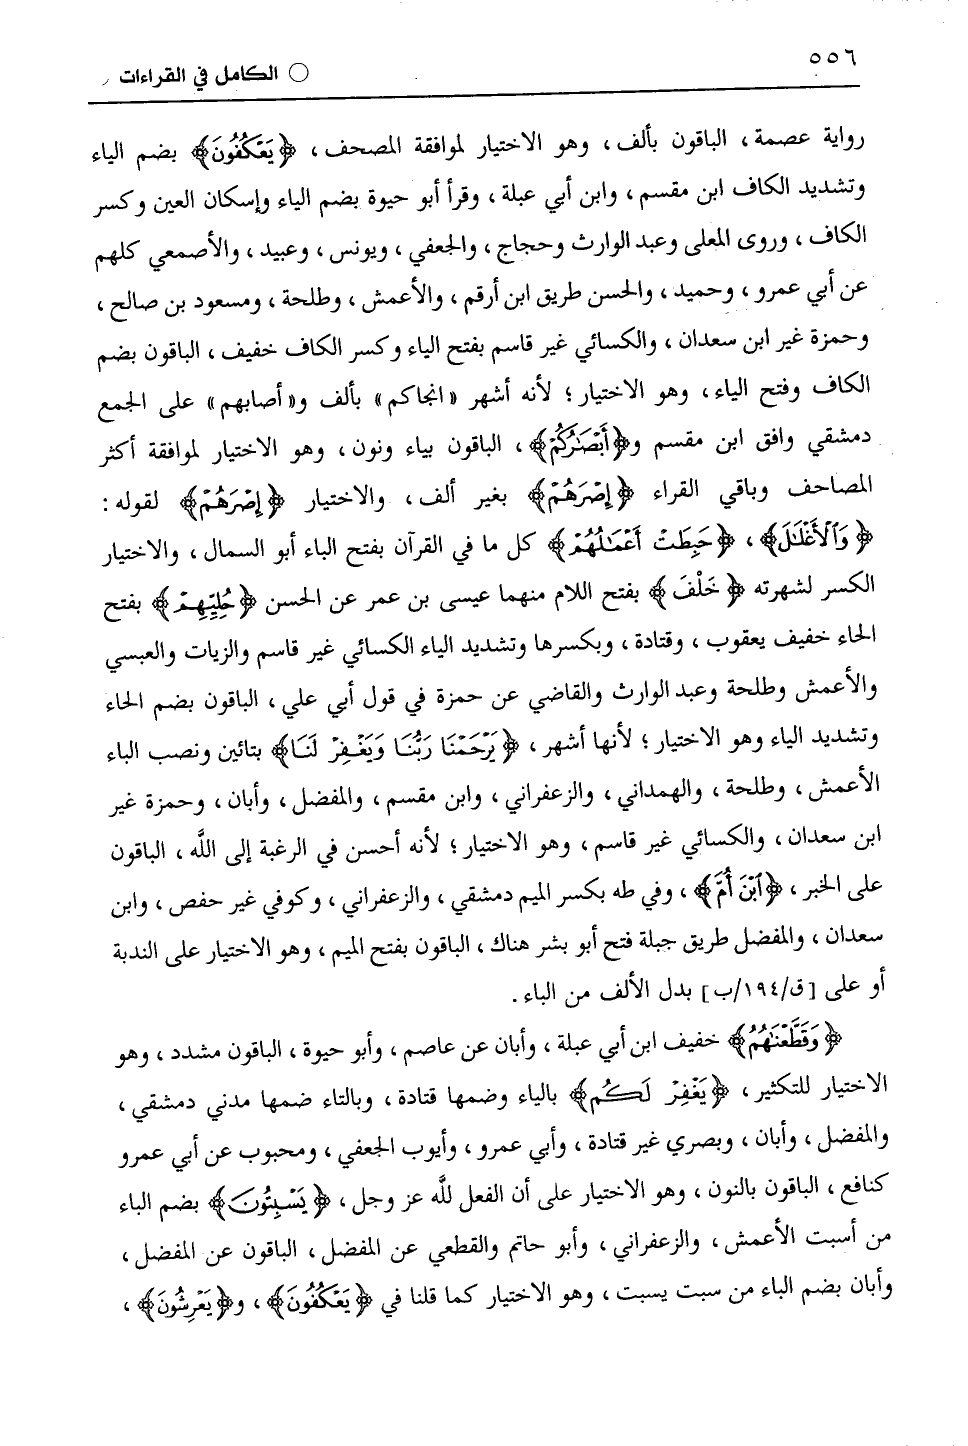 ٥٥٦
○ الكامل في القراءات
رواية عصمة، الباقون بألف، وهو الاختيار لموافقة المصحف، ﴿يَعۡكُفُونَ﴾ بضم الياء
وتشديد الكاف ابن مقسم، وابن أبي عبلة، وقرأ أبو حيوة بضم الياء وإسكان العين وكسر
الكاف، وروى المعلى وعبد الوارث وحجاج، والجعفي، ويونس، وعبيد، والأصمعي كلهم
عن أبي عمرو، وحميد، والحسن طريق ابن أرقم، والأعمش، وطلحة، ومسعود بن صالح،
وحمزة غير ابن سعدان، والكسائي غير قاسم بفتح الياء وكسر الكاف خفيف، الباقون بضم
الكاف وفتح الياء، وهو الاختيار؛ لأنه أشهر «انجاكم» بألف و«أصابهم» على الجمع
دمشقي وافق ابن مقسم و﴿أَبۡصَٰرُكُمۡ﴾، الباقون بياء ونون، وهو الاختيار لموافقة أكثر
المصاحف وباقي القراء ﴿إِصۡرَهُمۡ﴾ بغير ألف، والاختيار ﴿إِصۡرَهُمۡ﴾ لقوله:
﴿وَٱلۡأَغۡلَٰلَ﴾، ﴿حَبِطَتۡ أَعۡمَٰلُهُمۡ﴾ كل ما في القرآن بفتح الباء أبو السمال، والاختيار
الكسر لشهرته ﴿خَلْفَ﴾ بفتح اللام منهما عيسى بن عمر عن الحسن ﴿حُلِيِّهِمۡ﴾ بفتح
الحاء خفيف يعقوب، وقتادة، وبكسرها وتشديد الياء الكسائي غير قاسم والزيات والعبسي
والأعمش وطلحة وعبد الوارث والقاضي عن حمزة في قول أبي علي، الباقون بضم الحاء
وتشديد الياء وهو الاختيار؛ لأنها أشهر، ﴿يَرۡحَمۡنَا رَبُّنَا وَيَغۡفِرۡ لَنَا﴾ بتائين ونصب الباء
الأعمش، وطلحة، والهمداني، والزعفراني، وابن مقسم، والمفضل، وأبان، وحمزة غير
ابن سعدان، والكسائي غير قاسم، وهو الاختيار؛ لأنه أحسن في الرغبة إلى اللَّه، الباقون
على الخبر، ﴿ٱبۡنَ أُمَّ﴾، وفي طه بكسر الميم دمشقي، والزعفراني، وكوفي غير حفص، وابن
سعدان، والمفضل طريق جبلة فتح أبو بشر هناك، الباقون بفتح الميم، وهو الاختيار على الندبة
أو على [ق/١٩٤/ب] بدل الألف من الباء.
﴿وَقَطَّعۡنَٰهُمُ﴾ خفيف ابن أبي عبلة، وأبان عن عاصم، وأبو حيوة، الباقون مشدد، وهو
الاختيار للتكثير، ﴿يَغۡفِرۡ لَكُم﴾ بالياء وضمها قتادة، وبالتاء ضمها مدني دمشقي،
والمفضل، وأبان، وبصري غير قتادة، وأبي عمرو، وأيوب الجعفي، ومحبوب عن أبي عمرو
كنافع، الباقون بالنون، وهو الاختيار على أن الفعل للَّه عز وجل، ﴿يَسۡبِتُونَ﴾ بضم الباء
من أسبت الأعمش، والزعفراني، وأبو حاتم والقطعي عن المفضل، الباقون عن المفضل،
وأبان بضم الباء من سبت يسبت، وهو الاختيار كما قلنا في ﴿يَعۡكُفُونَ﴾، و﴿يَعۡرِشُونَ﴾،